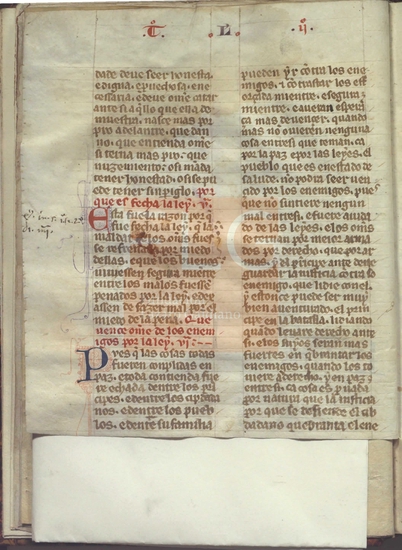 T. L. ij.
dade deue seer honesta,
e digna, e puechosa, e ne
cessaria, e deue ome catar
ante si aqllo que ella de
muestra, nasce mas por
pro adelantre, que dan
no, que entienda ome
si terna mas pro, que
nuzimiento: o si nada
tener honestad, o si se pu
ede tener sin piglo. por
que es fecha la ley. v.
Esta fue la razon por q
fue fecha la ley, q la
maldat de los oms fues
se refrenada por miedo
dellas, e que los buenos
uiuessen segura miente
entre los malos e fuesse
penados por la ley, e dex
assen de fazer mal por el
miedo de la pena. Que
uence ome de los enemi
gos por la ley. vj.
Pues q las cosas todas
fueren complidas en
paz, e toda contienda fue
re echada dentre los pri
cipes, e dentre los cipdada
nos, e dentre los pueb
los, e dentre su familia
pueden yr cotra los ene
migos, i cotrastar los esf
orçada mientre, e segura
mientre, e aueran esperã
ça mas de uençer, quando
mas no ouieren nenguna
cosa entresi que teman, ca
por la paz e por las leyes. el
pueblo que es en estado de
salude, no podra seer uen
çido por los enemigos, pues
que no sintiere nengun
mal entresi. e fuerte aiuda
do de las leyes, e los oms
se tornan por meior arma
dos por derecho, que por ar
mas, y el pricipe ante deue
guardar la iusticia cotra so
enemigo, que lidie con el,
y estonce puede ser muy
bien auenturado el prin
cipe en la batalla, lidiando
quando leuare derecho ante
si. e los suyos seran mas
fuertes en qbrantar los
enemigos, quando los to
uiere a derecho, y en paz
entresi, ca cosa es puada
por natura que la iusticia
por que se defiende el cib
dadano quebranta el ene